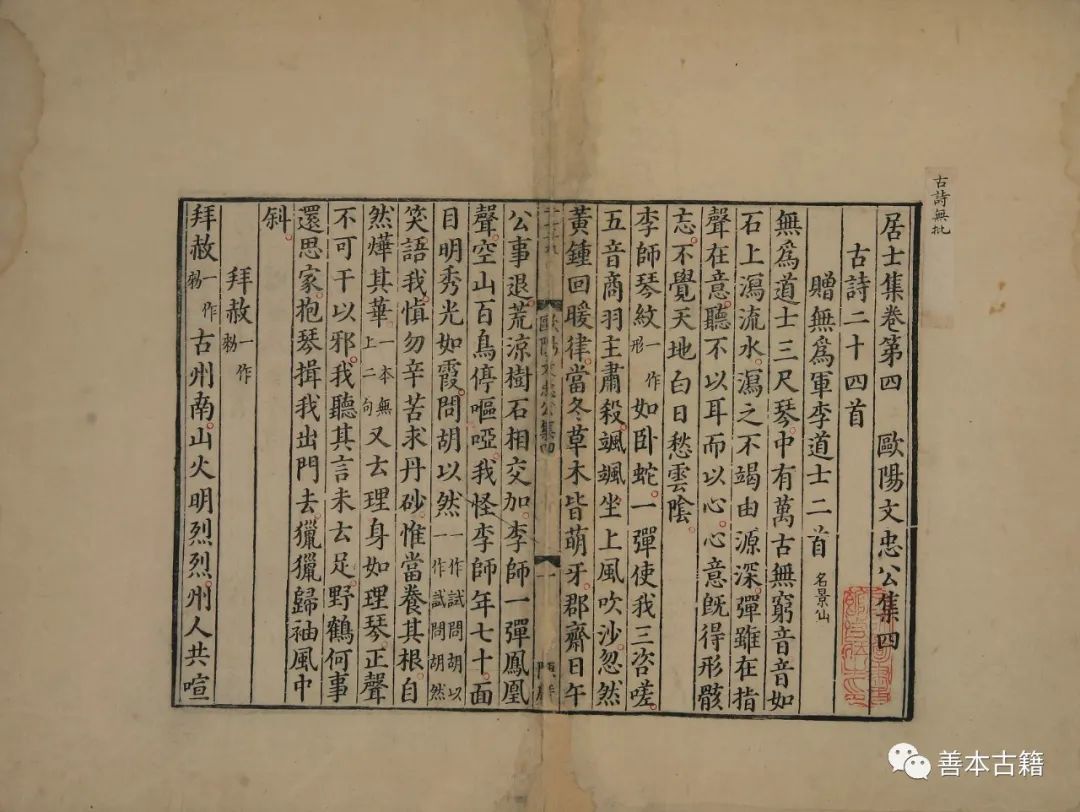 古詩無批
居士集卷第四 歐陽文忠公集四
古詩二十四首
贈無爲軍李道士二首 名景仙
無爲道士三尺琴中有萬古無窮音音如
石上瀉流水瀉之不竭由源深彈雖在指
聲在意聽不以耳而以心心意既得形骸
忘不覺天地白日愁雲陰
李師琴紋一作形如卧蛇一彈使我三咨嗟
五音商羽主肅殺颯颯坐上風吹沙忽然
黃鍾回暖律當冬草木皆萌牙郡齋日午
歐陽文忠公集四
一
公事退荒涼樹石相交加李師一彈鳳凰
聲空山百鳥停嘔啞我怪李師年七十面
目明秀光如霞問胡以然一作試問胡以一作試問胡然
笑語我慎勿辛苦求丹砂惟當養其根自
然燁其華一本無上二句又云理身如理琴正聲
不可干以邪我聽其言未云足野鶴何事
還思家抱琴揖我出門去獵獵歸袖風中
斜
拜赦一作勑
拜赦一作勑古州南山火明烈烈州人共喧
善本古籍